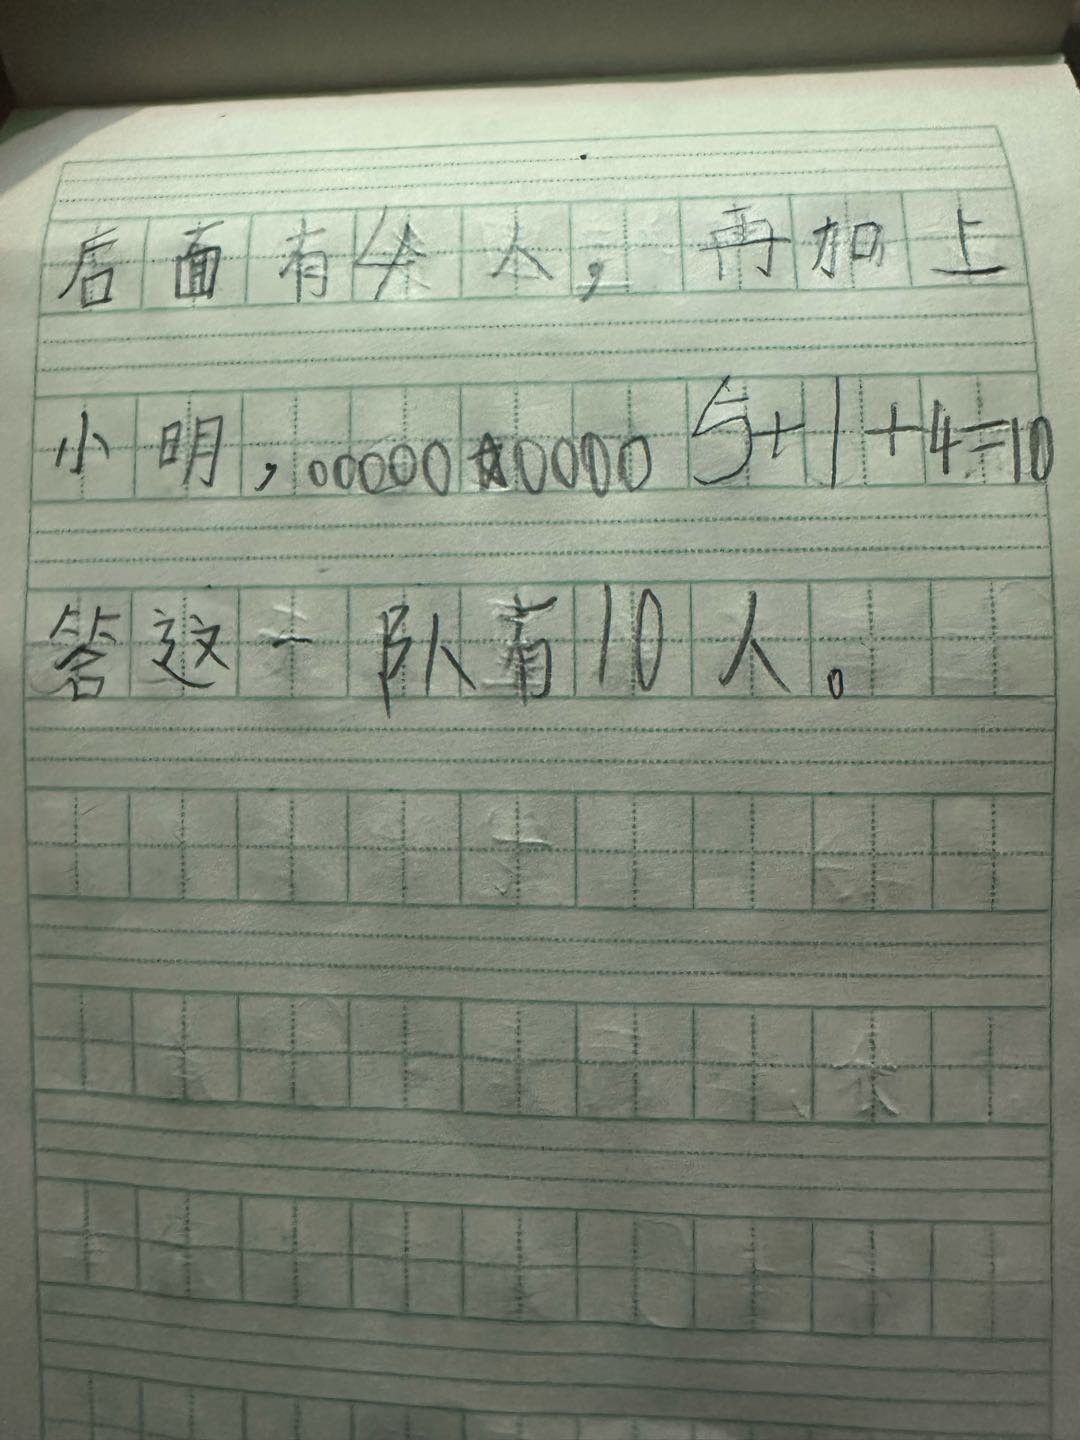 后面有4人，再加上
小明，○○○○○☆○○○○ 5+1+4=10
答这一队有10人。